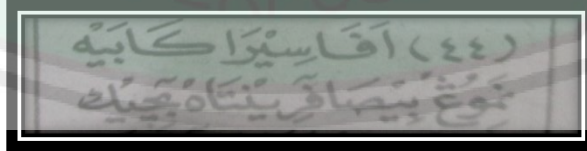 (٤٤) اَفَاسِيْرَا كَابَيْه
نَمَوْڠْ بِيْصَا ڤَرِيْنْتَاهْ بَچِيْك